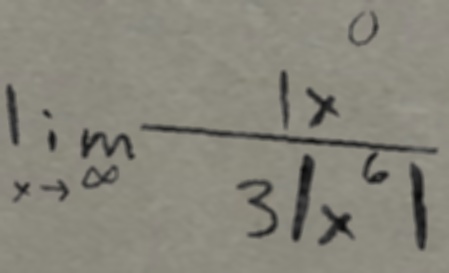 lim x→∞ 1x⁰ / 3|x⁶|